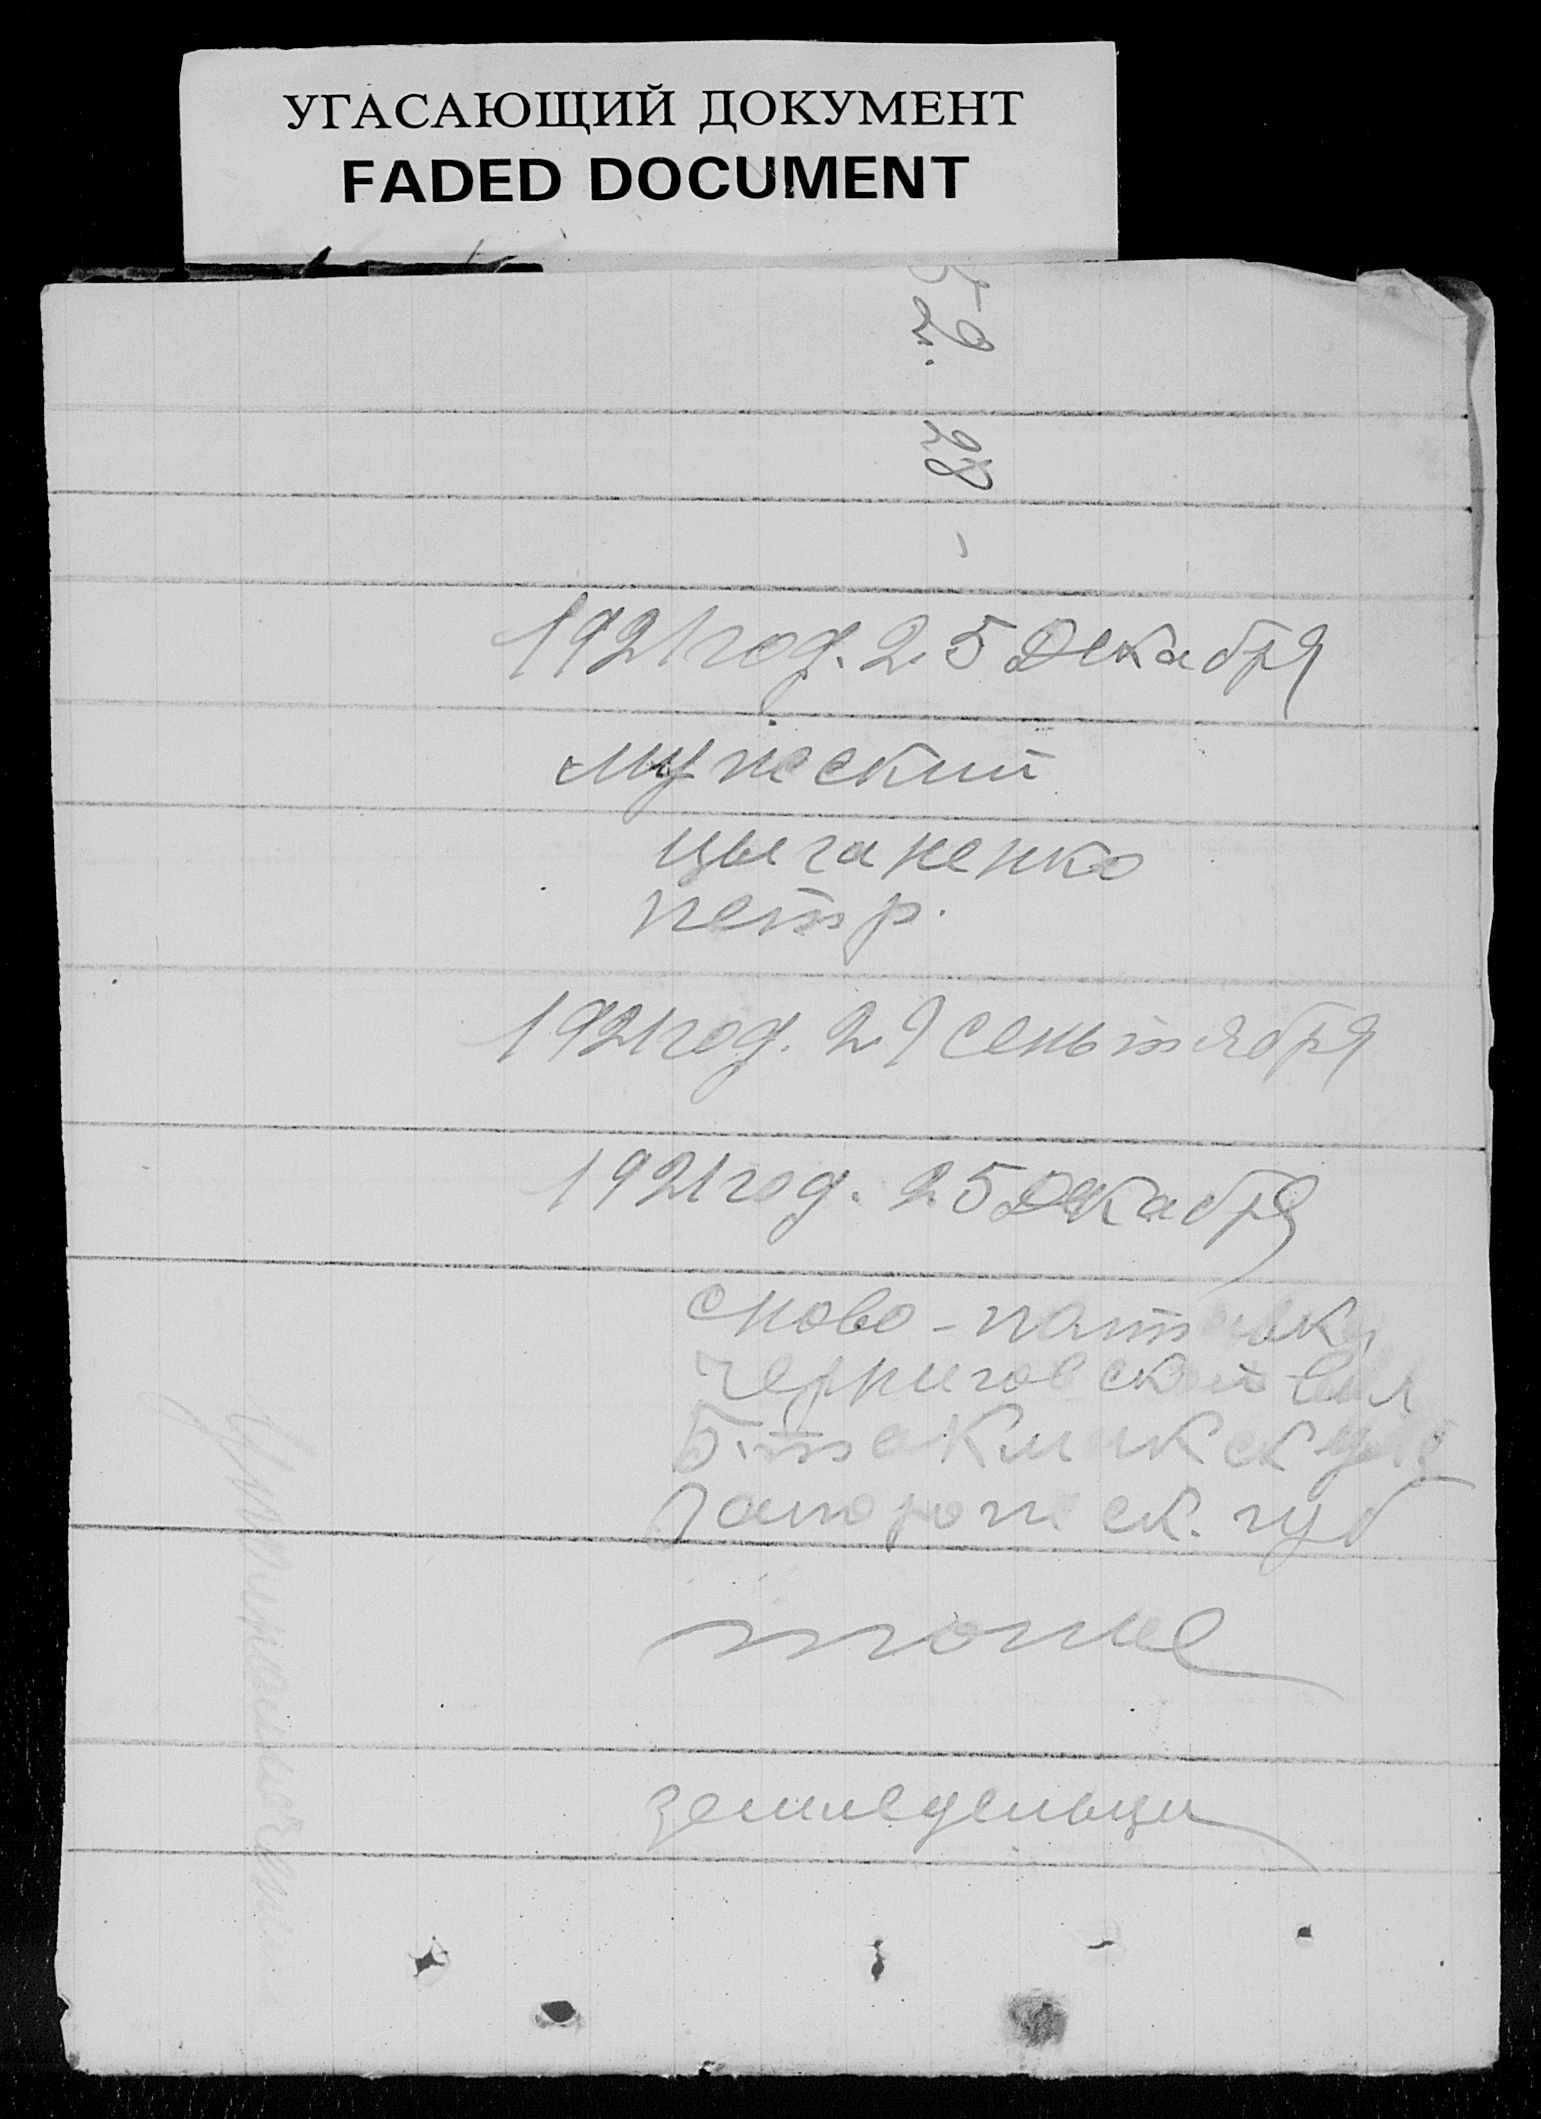 УГАСАЮЩИЙ ДОКУМЕНТ
FADED DOCUMENT
52.
28
1921 год. 25 Декабря
мужский
цыганенко
петр.
1921 год. 29 сеньтября
1921 год. 25 Декабря
сново-
Черниговской вол
Б. токмакск
Запорожск. губ
тоже
земледельцы